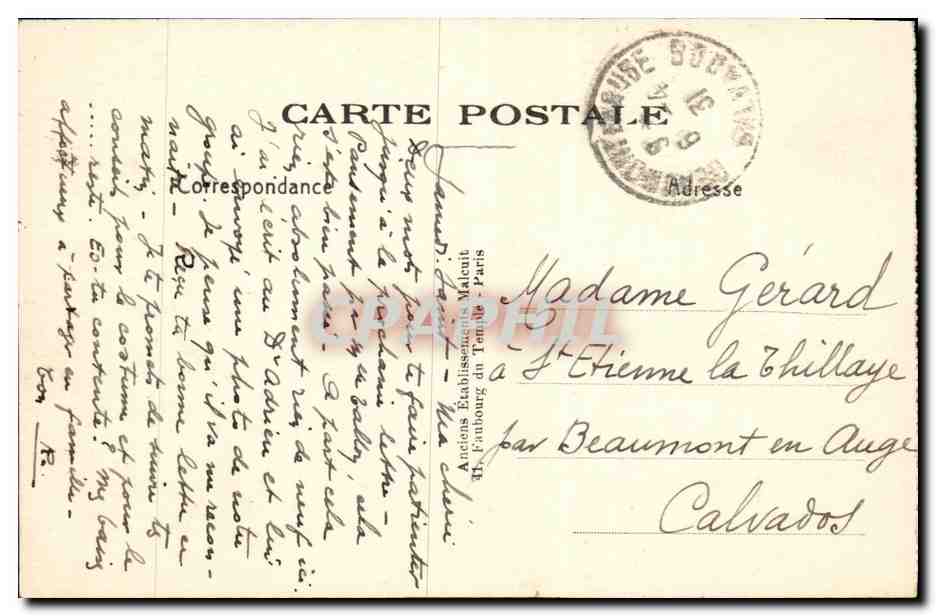 CARTE POSTALE
Correspondance
Adresse
Samedi. Midi - Ma chérie
Deux mots pour te faire patienter
jusqu'à la prochaine lettre -
Pansement fin cela
s'est bien passé - A part cela
rien, absolument rien de neuf ici.
J'ai écrit au Dr Adrien et lui
ai envoyé une photo de notre
groupe. Je pense qu'il va me recon-
naître - Reçu ta bonne lettre ce
matin - Je te promets de suivre ts
conseils pour le costume et pour le
..... reste. Es-tu contente ?
affectueux à partager en famille -
Ton R.
Anciens Établissements Malcuit
11, Faubourg du Temple - Paris
Madame Gérard
à St Etienne la Thillaye
par Beaumont en Auge
Calvados
CPAPHIL